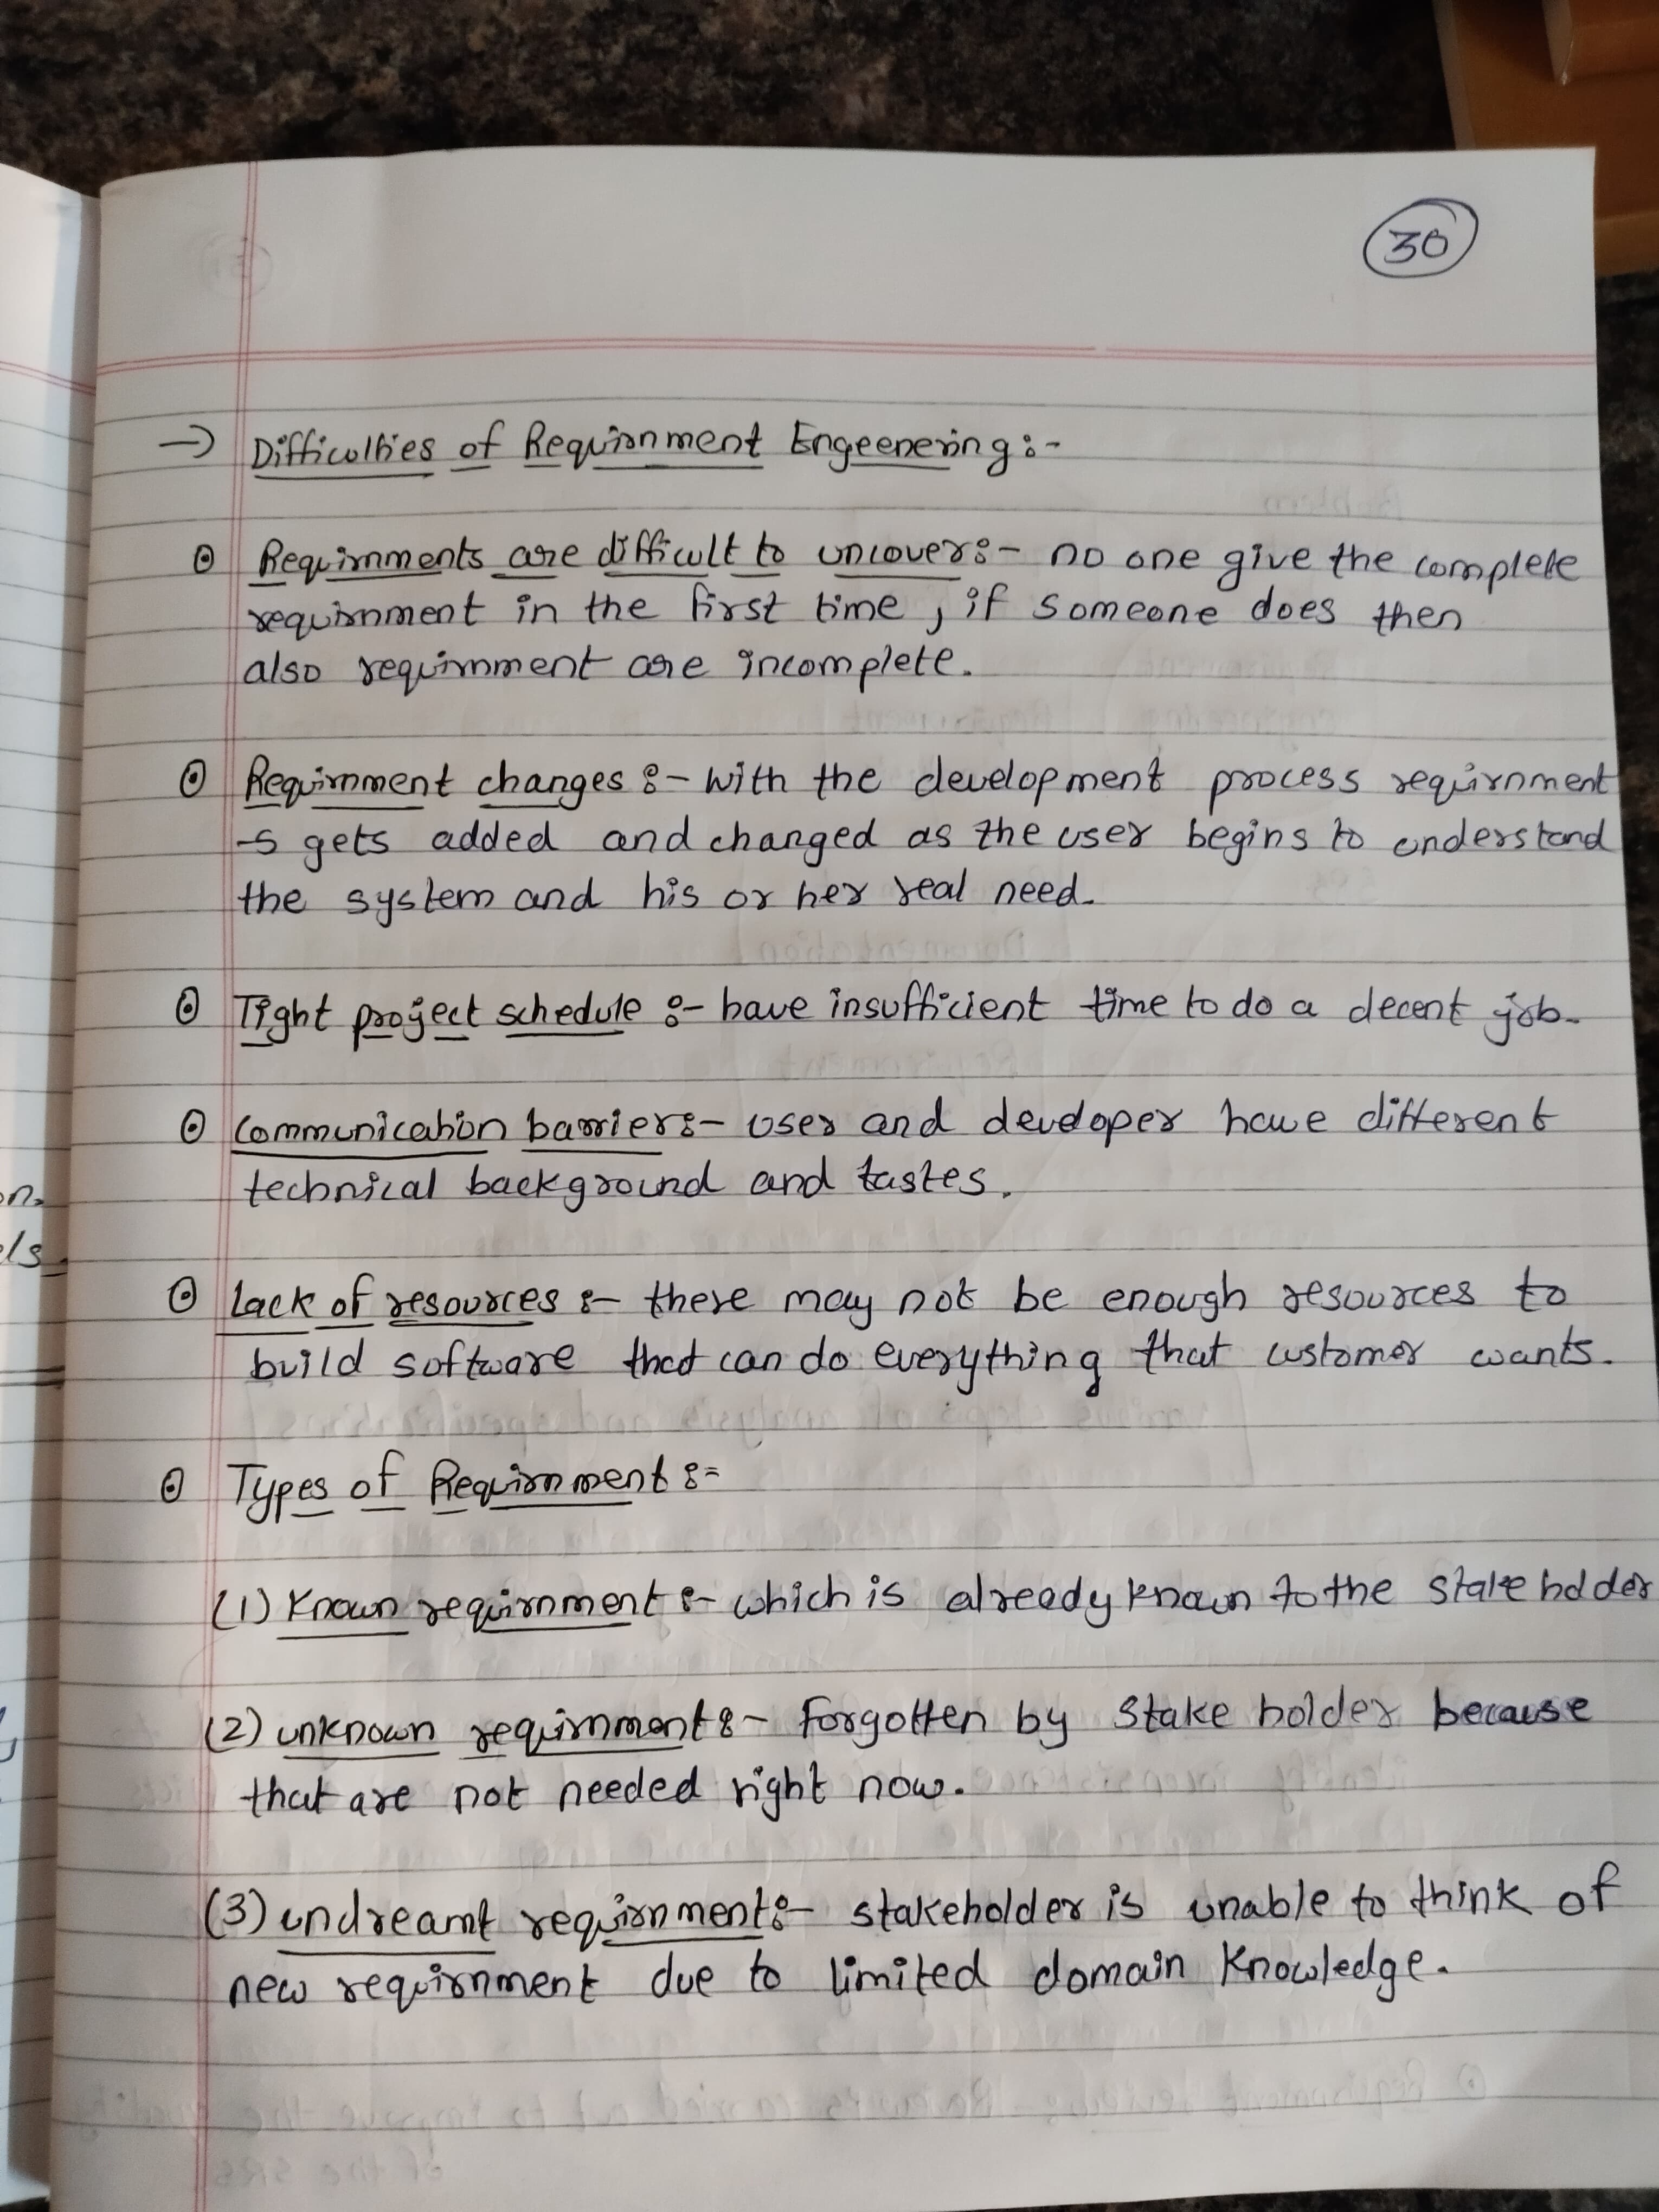 30
→ Difficulties of Requirnment Engeenering:-
⊙ Requirnments are difficult to uncover:- no one give the complete
requirnment in the first time, if someone does then
also requirnment are incomplete.
⊙ Requirnment changes :- with the development process requirnment
-s gets added and changed as the user begins to understand
the system and his or her real need.
⊙ Tight project schedule :- have insufficient time to do a decent job.
⊙ Communication barrier:- user and developer have different
technical background and tastes.
⊙ Lack of resources :- there may not be enough resources to
build software that can do everything that customer wants.
⊙ Types of Requirnment :=
(1) Known requirnment :- which is already known to the stake holder
(2) unknown requirnment :- Forgotten by stake holder because
that are not needed right now.
(3) undreamt requirnment:- stakeholder is unable to think of
new requirnment due to limited domain knowledge.
on.
els